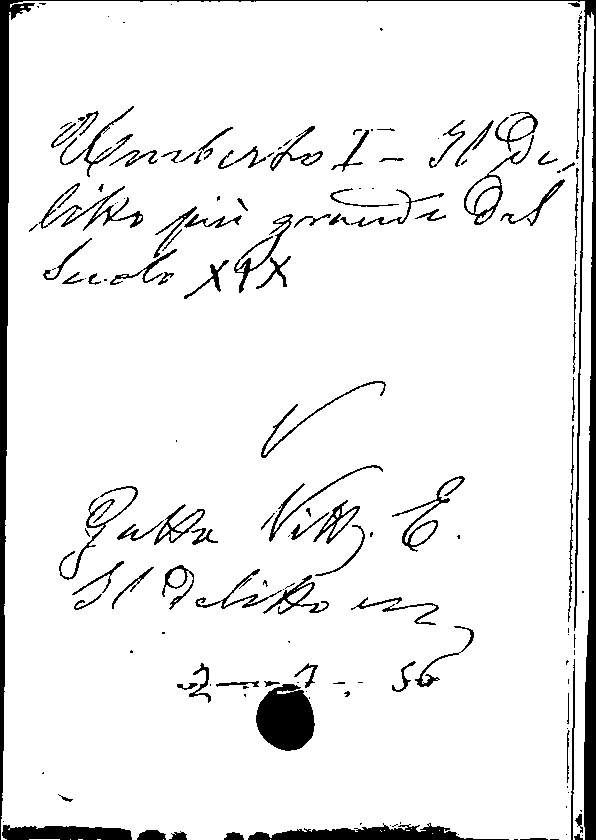 Umberto I - Il De-
litto più grande del
Secolo XIX
V
Gatta Vitt. E.
Il Delitto ecc